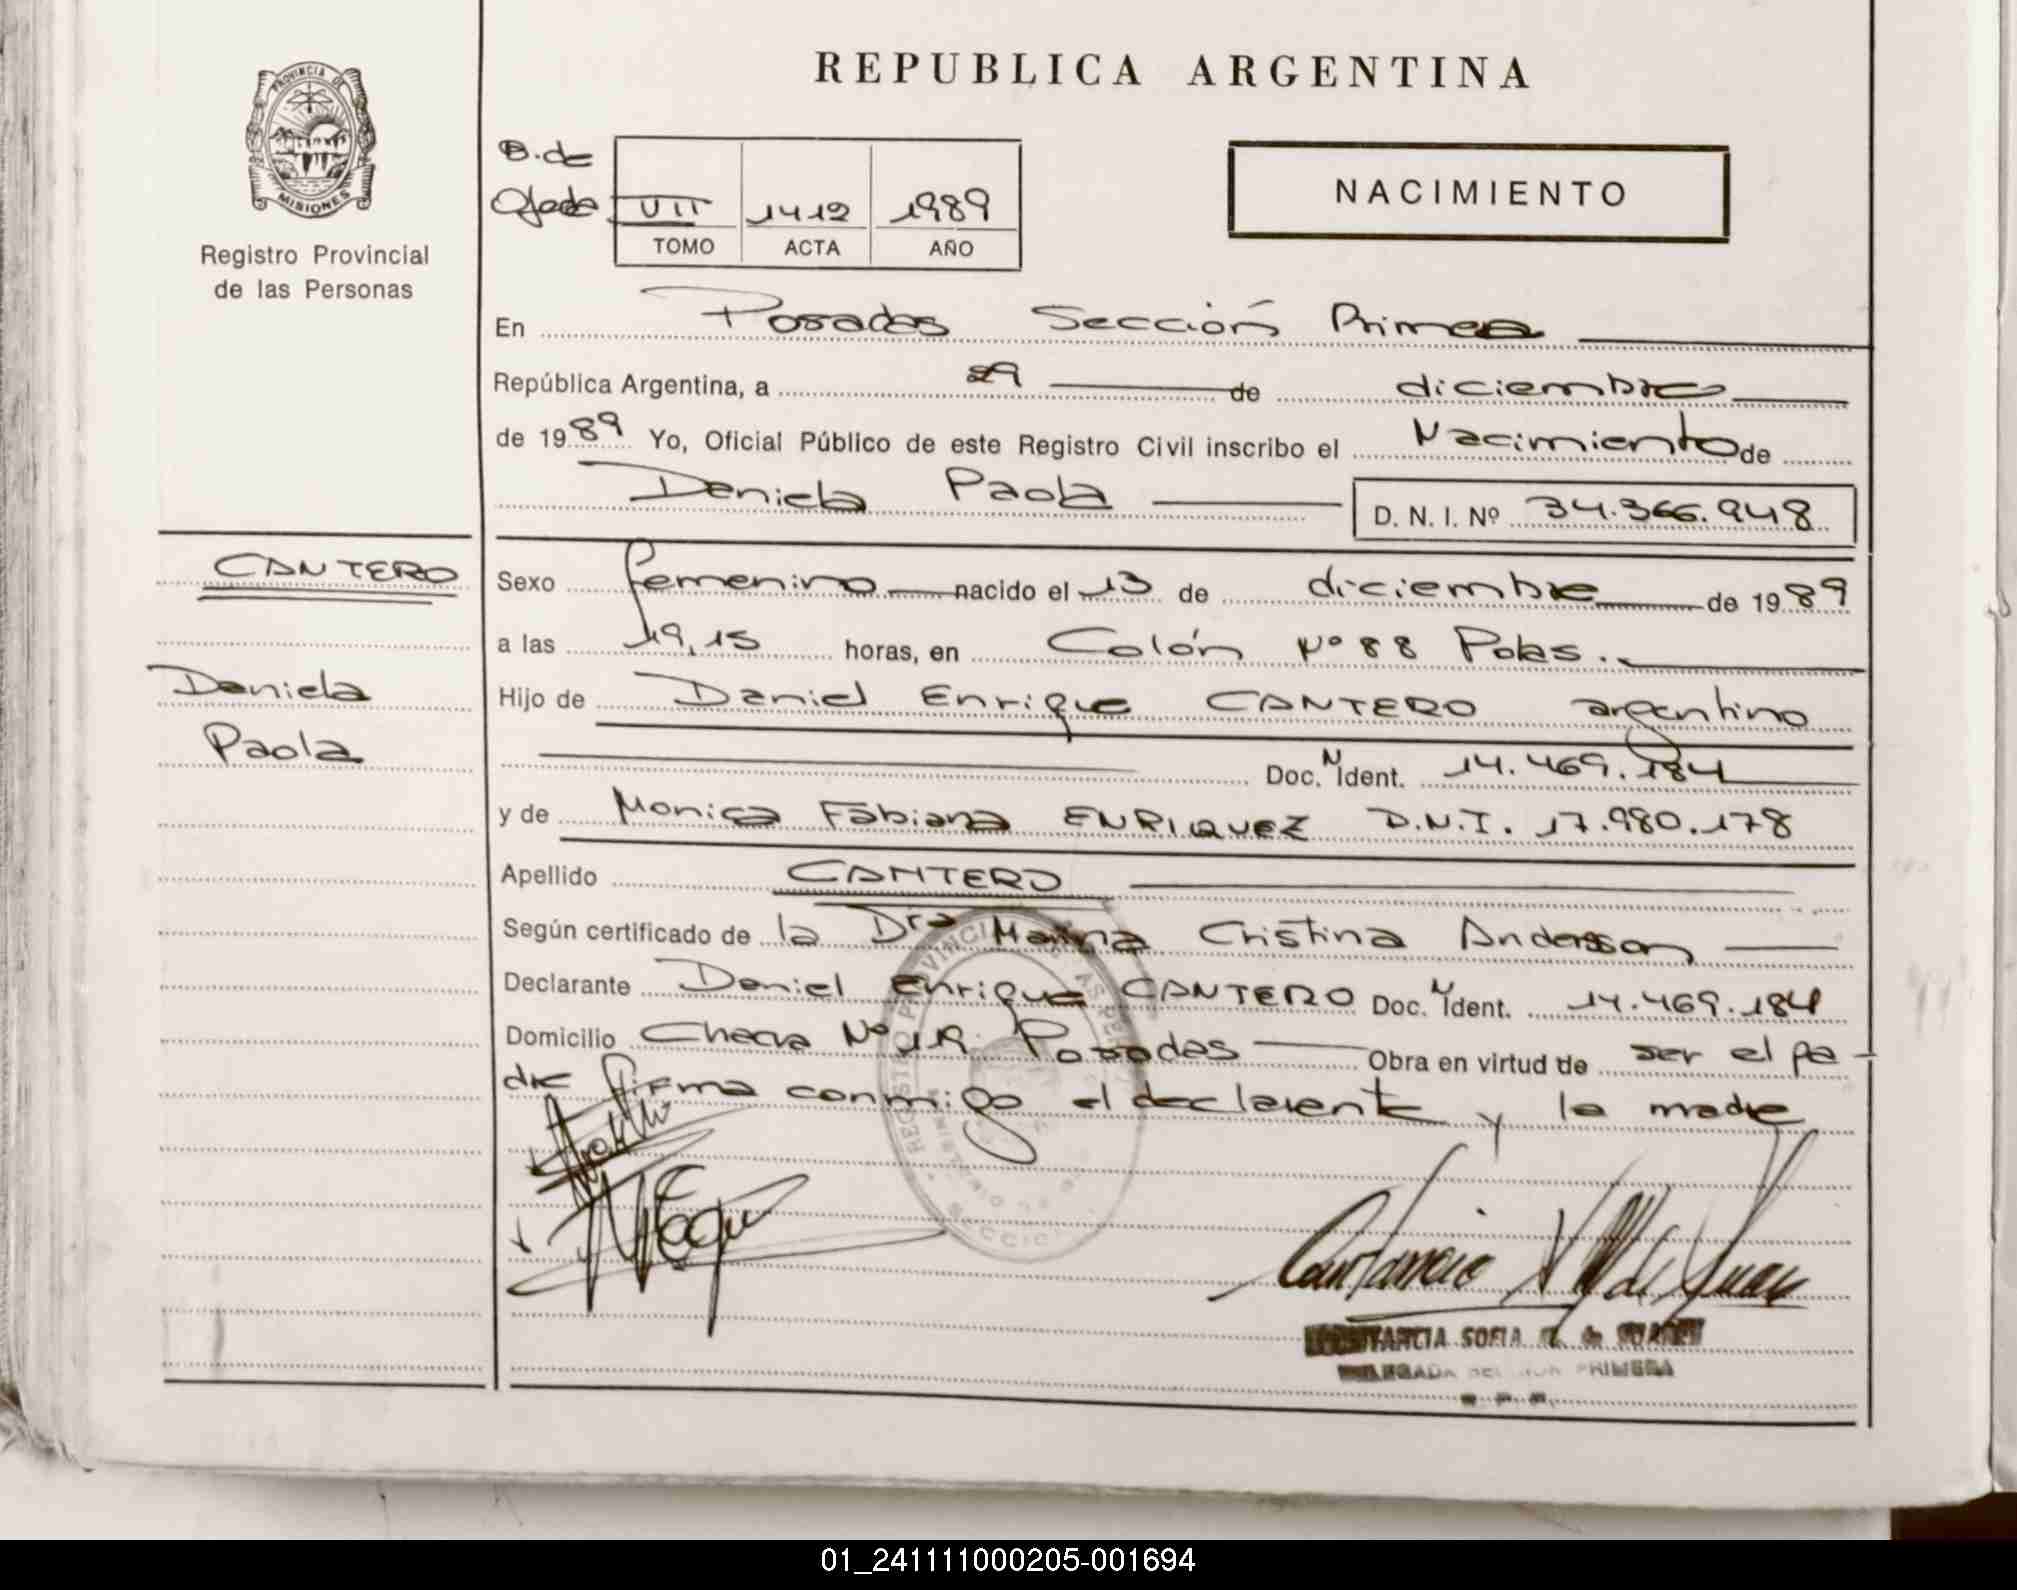 REPUBLICA ARGENTINA
PROVINCIA DE
MISIONES
Registro Provincial
de las Personas
B. de
VII 1412 1989
TOMO ACTA AÑO
NACIMIENTO
En Posadas Sección Primera
República Argentina, a 29 de diciembre
de 1989 Yo, Oficial Público de este Registro Civil inscribo el Nacimiento de
Daniela Paola D. N. I. Nº 34.366.948
CANTERO
Daniela
Paola
Sexo femenino nacido el 13 de diciembre de 1989
a las 19,15 horas, en Colón Nº 88 Pdas.
Hijo de Daniel Enrique CANTERO argentino
Doc. N Ident. 14.469.184
y de Monica Fabiana ENRIQUEZ D.N.I. 17.980.178
Apellido CANTERO
Según certificado de la Dra Marina Cristina Andersson
Declarante Daniel Enrique CANTERO Doc. N Ident. 14.469.184
Domicilio Nº Posadas Obra en virtud de ser el pa
dre firma conmigo el declarante y la madre
SOFIA de
PRIMERA
01_241111000205-001694